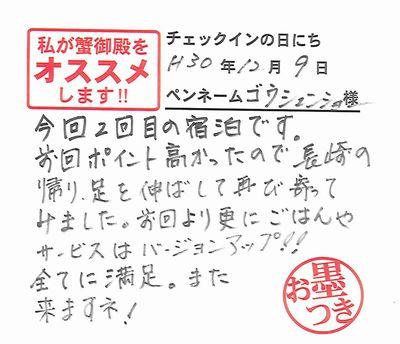 私が蟹御殿を
オススメ
します!!
チェックインの日にち
H30年12月9日
ペンネームゴウシェンシャー様
今回2回目の宿泊です。
前回ポイント高かったので長崎の
帰り、足を伸ばして再び寄って
みました。前回より更にごはんや
サービスはバージョンアップ!!
全てに満足。また
来ますネ!
お墨つき